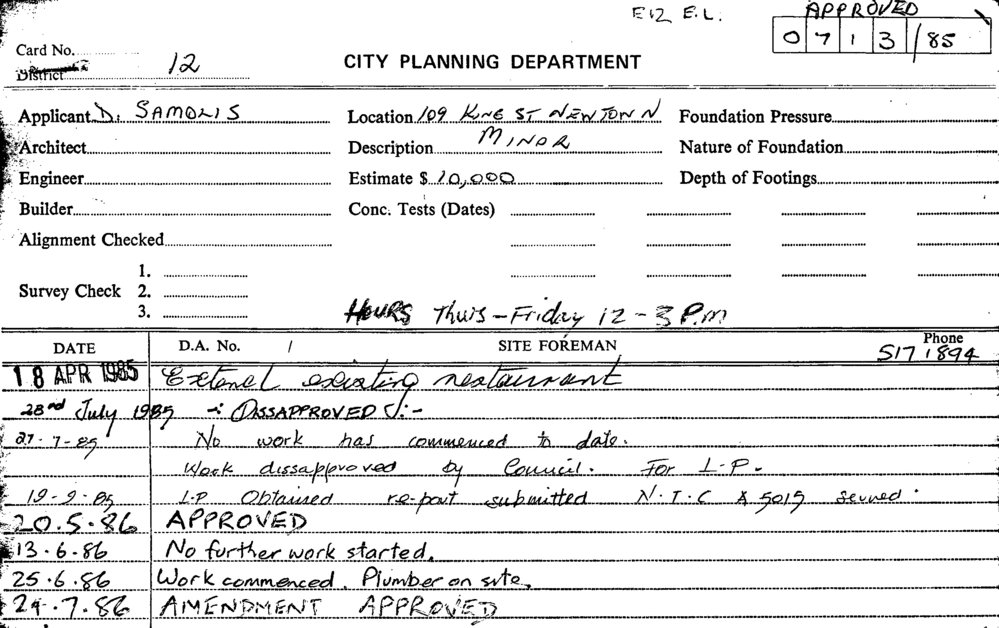 E12 E.L.
APPROVED
0 7 1 3 / 85
Card No.
District 12
CITY PLANNING DEPARTMENT
Applicant D. SAMOLIS Location 109 KING ST NEWTOWN Foundation Pressure
Architect Description MINOR Nature of Foundation
Engineer Estimate $ 10,000 Depth of Footings
Builder Conc. Tests (Dates)
Alignment Checked
1.
Survey Check 2.
3.
HOURS Thurs - Friday 12 - 3 P.m
DATE D.A. No. / SITE FOREMAN Phone 517 1894
18 APR 1985 Extend existing restaurant
23rd July 1985 -: DISSAPPROVED :-
27-7-85 No work has commenced to date.
Work dissapproved by Council. For I-P-
19-9-85 I-P Obtained re-port submitted N.T.C & 5019 served.
20.5.86 APPROVED
13.6.86 No further work started.
25.6.86 Work commenced. Plumber on site.
29.7.86 AMENDMENT APPROVED